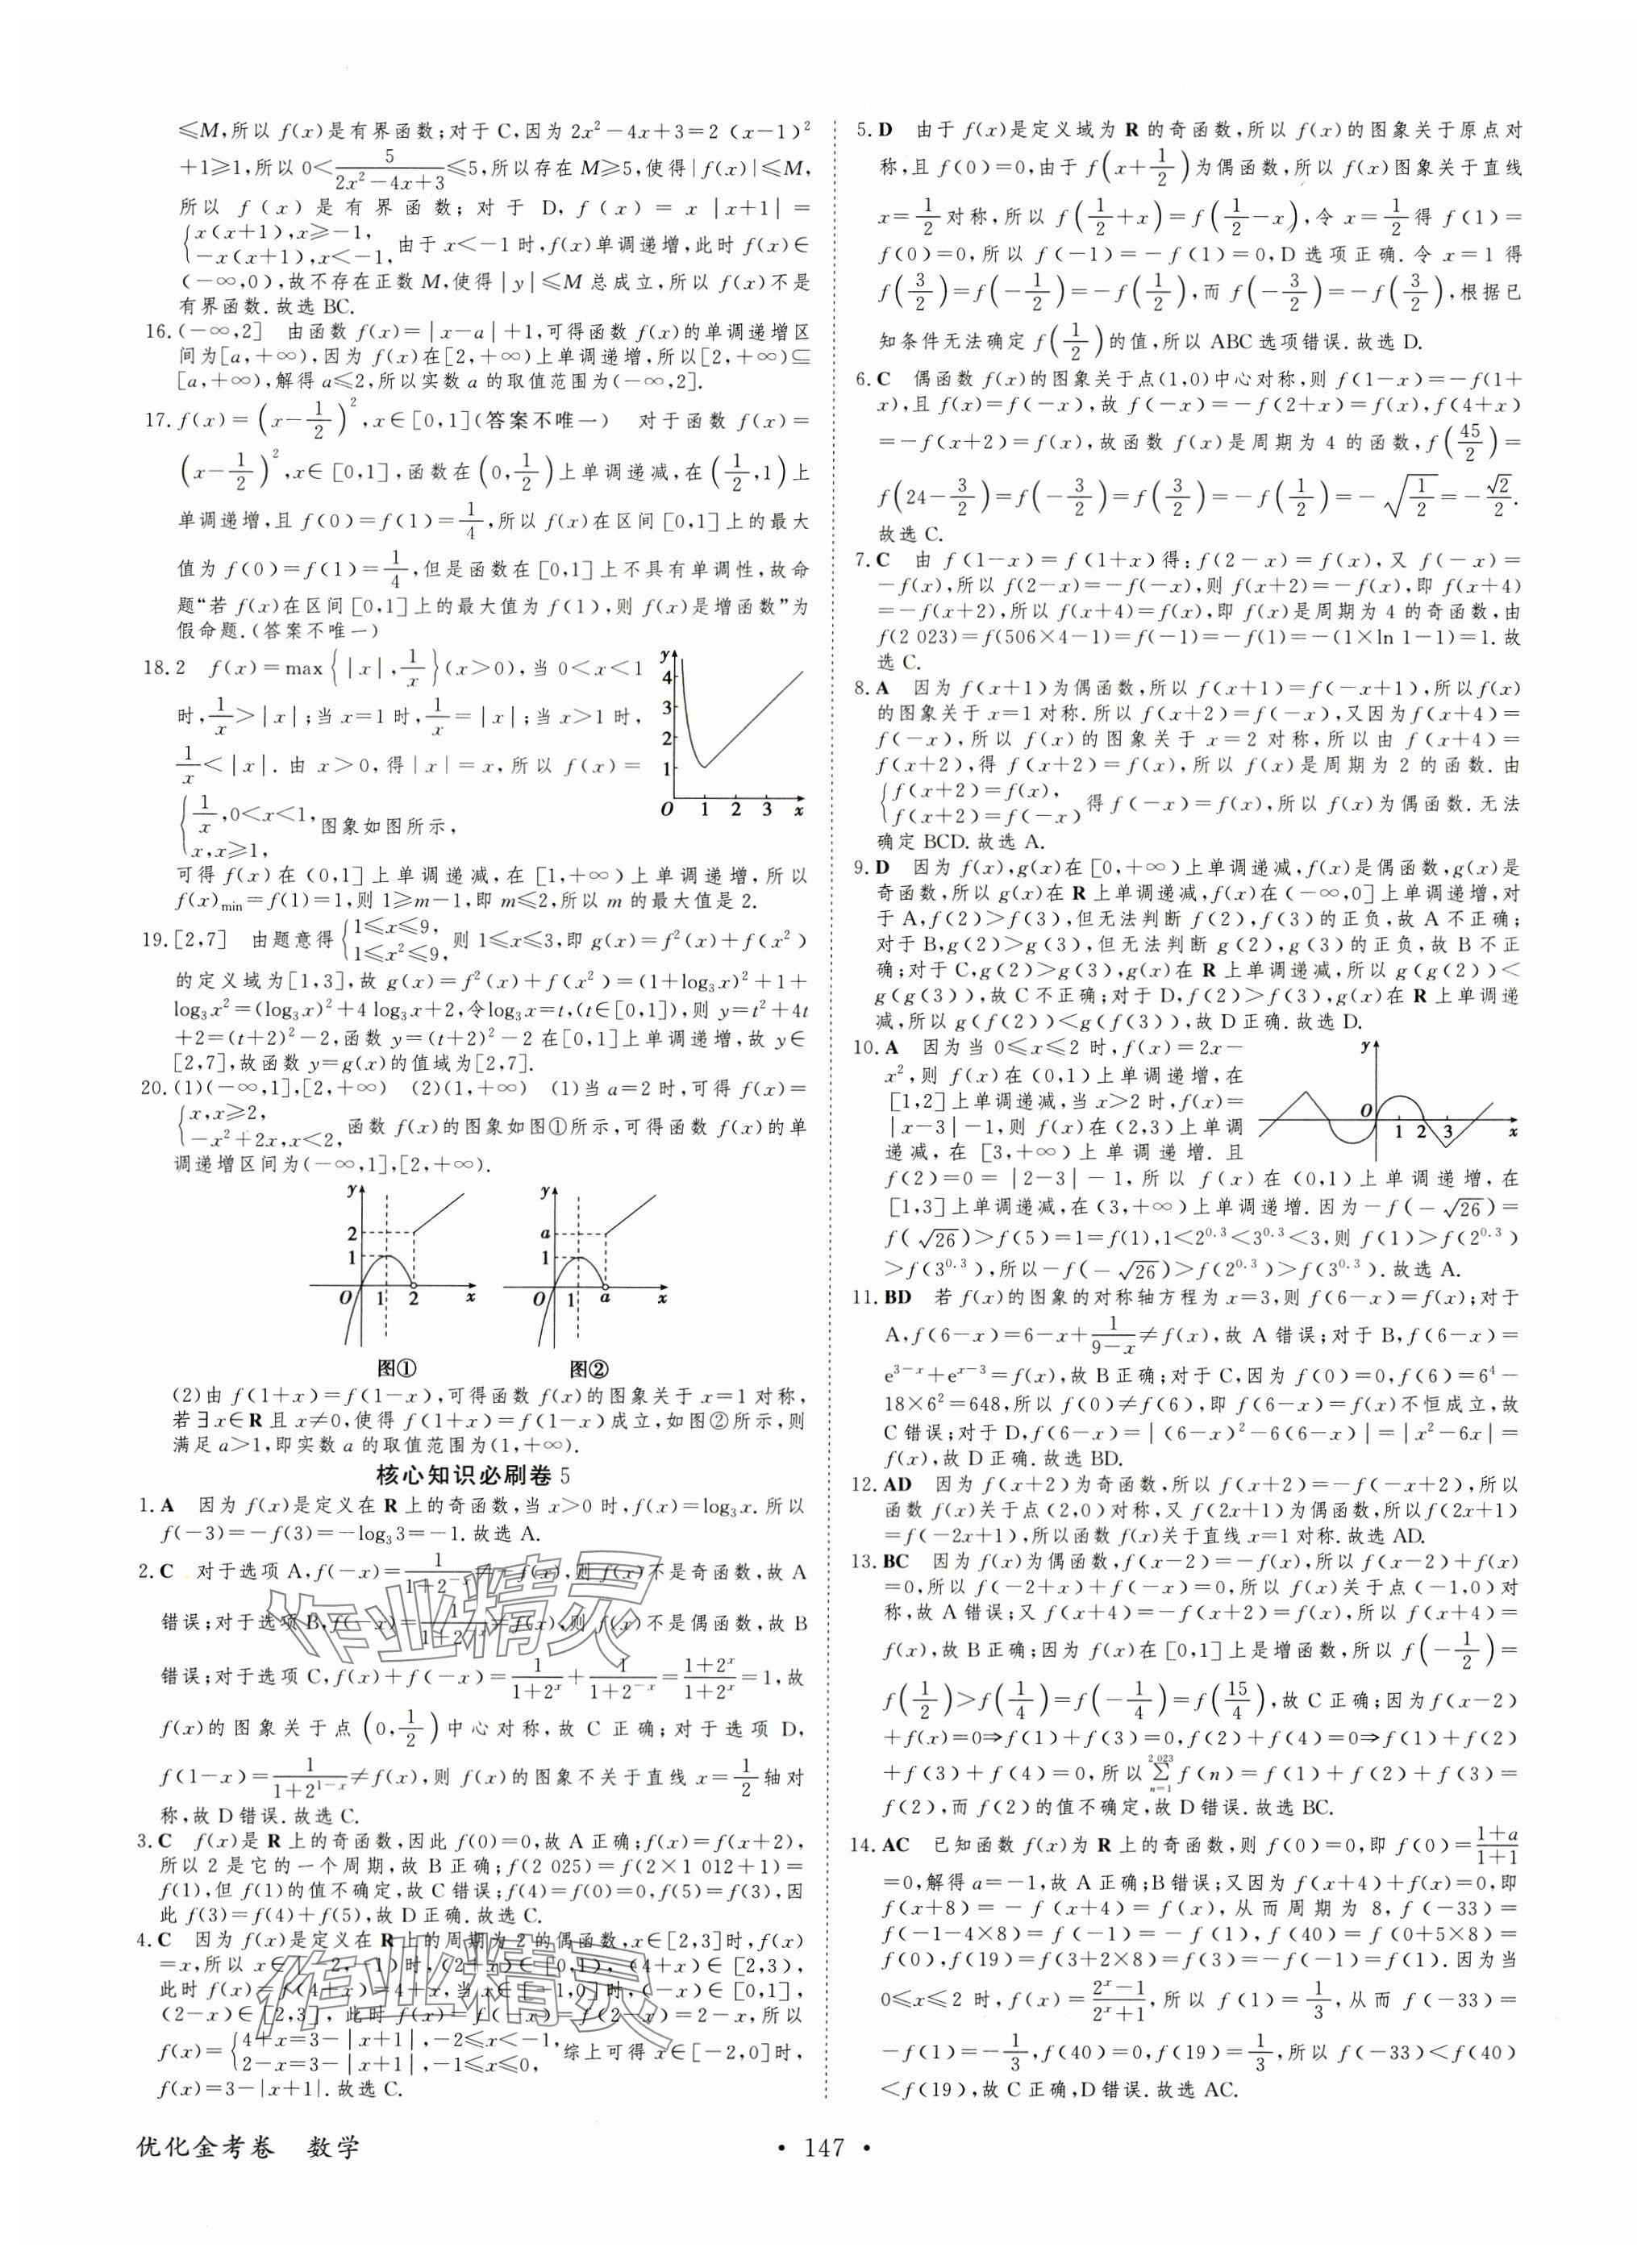 ≤M,所以 f(x)是有界函数;对于 C,因为 2x²−4x+3=2(x−1)²
+1≥1,所以 0<5/(2x²−4x+3)≤5,所以存在 M≥5,使得|f(x)|≤M,
所以 f(x)是有界函数;对于 D,f(x)=x|x+1|=
{x(x+1),x≥−1, −x(x+1),x<−1, 由于 x<−1 时,f(x)单调递增,此时 f(x)∈
(−∞,0),故不存在正数 M,使得|y|≤M 总成立,所以 f(x)不是
有界函数.故选 BC.
16.(−∞,2] 由函数 f(x)=|x−a|+1,可得函数 f(x)的单调递增区
间为[a,+∞),因为 f(x)在[2,+∞)上单调递增,所以[2,+∞)⊆
[a,+∞),解得 a≤2,所以实数 a 的取值范围为(−∞,2].
17.f(x)=(x−1/2)²,x∈[0,1](答案不唯一) 对于函数 f(x)=
(x−1/2)²,x∈[0,1],函数在(0,1/2)上单调递减,在(1/2,1)上
单调递增,且 f(0)=f(1)=1/4,所以 f(x)在区间[0,1]上的最大
值为 f(0)=f(1)=1/4,但是函数在[0,1]上不具有单调性,故命
题“若 f(x)在区间[0,1]上的最大值为 f(1),则 f(x)是增函数”为
假命题.(答案不唯一)
18.2 f(x)=max{|x|,1/x}(x>0),当 0<x<1
时,1/x>|x|;当 x=1 时,1/x=|x|;当 x>1 时,
1/x<|x|.由 x>0,得|x|=x,所以 f(x)=
{1/x,0<x<1, x,x≥1, 图象如图所示,
y 4 3 2 1 O 1 2 3 x
可得 f(x)在(0,1]上单调递减,在[1,+∞)上单调递增,所以
f(x)min=f(1)=1,则 1≥m−1,即 m≤2,所以 m 的最大值是 2.
19.[2,7] 由题意得{1≤x≤9, 1≤x²≤9, 则 1≤x≤3,即 g(x)=f²(x)+f(x²)
的定义域为[1,3],故 g(x)=f²(x)+f(x²)=(1+log₃x)²+1+
log₃x²=(log₃x)²+4 log₃x+2,令log₃x=t,(t∈[0,1]),则 y=t²+4t
+2=(t+2)²−2,函数 y=(t+2)²−2 在[0,1]上单调递增,故 y∈
[2,7],故函数 y=g(x)的值域为[2,7].
20.(1)(−∞,1],[2,+∞) (2)(1,+∞) (1)当 a=2 时,可得 f(x)=
{x,x≥2, −x²+2x,x<2, 函数 f(x)的图象如图①所示,可得函数 f(x)的单
调递增区间为(−∞,1],[2,+∞).
y 2 1 O 1 2 x
y a 1 O 1 a x
图① 图②
(2)由 f(1+x)=f(1−x),可得函数 f(x)的图象关于 x=1 对称,
若∃x∈R 且 x≠0,使得 f(1+x)=f(1−x)成立,如图②所示,则
满足 a>1,即实数 a 的取值范围为(1,+∞).
核心知识必刷卷 5
1.A 因为 f(x)是定义在 R 上的奇函数,当 x>0 时,f(x)=log₃x.所以
f(−3)=−f(3)=−log₃3=−1.故选 A.
2.C 对于选项 A,f(−x)=1/(1+2⁻ˣ)≠−f(x),则 f(x)不是奇函数,故 A
错误;对于选项 B,f(−x)=1/(1+2⁻ˣ)≠f(x),则 f(x)不是偶函数,故 B
错误;对于选项 C,f(x)+f(−x)=1/(1+2ˣ)+1/(1+2⁻ˣ)=(1+2ˣ)/(1+2ˣ)=1,故
f(x)的图象关于点(0,1/2)中心对称,故 C 正确;对于选项 D,
f(1−x)=1/(1+2¹⁻ˣ)≠f(x),则 f(x)的图象不关于直线 x=1/2轴对
称,故 D 错误.故选 C.
3.C f(x)是 R 上的奇函数,因此 f(0)=0,故 A 正确;f(x)=f(x+2),
所以 2 是它的一个周期,故 B 正确;f(2 025)=f(2×1 012+1)=
f(1),但 f(1)的值不确定,故 C 错误;f(4)=f(0)=0,f(5)=f(3),因
此 f(3)=f(4)+f(5),故 D 正确.故选 C.
4.C 因为 f(x)是定义在 R 上的周期为 2 的偶函数,x∈[2,3]时,f(x)
=x,所以 x∈[−2,−1)时,(2+x)∈[0,1),(4+x)∈[2,3),
此时 f(x)=f(4+x)=4+x,当 x∈[−1,0]时,(−x)∈[0,1],
(2−x)∈[2,3],此时 f(x)=f(−x)=f(2−x)=2−x,所以
f(x)={4+x=3−|x+1|,−2≤x<−1, 2−x=3−|x+1|,−1≤x≤0, 综上可得 x∈[−2,0]时,
f(x)=3−|x+1|.故选 C.
5.D 由于 f(x)是定义域为 R 的奇函数,所以 f(x)的图象关于原点对
称,且 f(0)=0,由于 f(x+1/2)为偶函数,所以 f(x)图象关于直线
x=1/2对称,所以 f(1/2+x)=f(1/2−x),令 x=1/2得 f(1)=
f(0)=0,所以 f(−1)=−f(1)=0,D 选项正确.令 x=1 得
f(3/2)=f(−1/2)=−f(1/2),而 f(−3/2)=−f(3/2),根据已
知条件无法确定 f(1/2)的值,所以 ABC 选项错误.故选 D.
6.C 偶函数 f(x)的图象关于点(1,0)中心对称,则 f(1−x)=−f(1+
x),且 f(x)=f(−x),故 f(−x)=−f(2+x)=f(x),f(4+x)
=−f(x+2)=f(x),故函数 f(x)是周期为 4 的函数,f(45/2)=
f(24−3/2)=f(−3/2)=f(3/2)=−f(1/2)=−√(1/2)=−√2/2.
故选 C.
7.C 由 f(1−x)=f(1+x)得:f(2−x)=f(x),又 f(−x)=
−f(x),所以 f(2−x)=−f(−x),则 f(x+2)=−f(x),即 f(x+4)
=−f(x+2),所以 f(x+4)=f(x),即 f(x)是周期为 4 的奇函数,由
f(2 023)=f(506×4−1)=f(−1)=−f(1)=−(1×ln 1−1)=1.故
选 C.
8.A 因为 f(x+1)为偶函数,所以 f(x+1)=f(−x+1),所以f(x)
的图象关于 x=1 对称.所以 f(x+2)=f(−x),又因为f(x+4)=
f(−x),所以 f(x)的图象关于 x=2 对称,所以由 f(x+4)=
f(x+2),得 f(x+2)=f(x),所以 f(x)是周期为 2 的函数.由
{f(x+2)=f(x), f(x+2)=f(−x) 得 f(−x)=f(x),所以 f(x)为偶函数.无法
确定 BCD.故选 A.
9.D 因为 f(x),g(x)在[0,+∞)上单调递减,f(x)是偶函数,g(x)是
奇函数,所以 g(x)在 R 上单调递减,f(x)在(−∞,0]上单调递增,对
于 A,f(2)>f(3),但无法判断 f(2),f(3)的正负,故 A 不正确;
对于 B,g(2)>g(3),但无法判断 g(2),g(3)的正负,故 B 不正
确;对于 C,g(2)>g(3),g(x)在 R 上单调递减,所以 g(g(2))<
g(g(3)),故 C 不正确;对于 D,f(2)>f(3),g(x)在 R 上单调递
减,所以 g(f(2))<g(f(3)),故 D 正确.故选 D.
10.A 因为当 0≤x≤2 时,f(x)=2x−
x²,则 f(x)在(0,1)上单调递增,在
[1,2]上单调递减,当 x>2 时,f(x)=
|x−3|−1,则 f(x)在(2,3)上单调
递减,在[3,+∞)上单调递增.且
y O 1 2 3 x
f(2)=0=|2−3|−1,所以 f(x)在(0,1)上单调递增,在
[1,3]上单调递减,在(3,+∞)上单调递增.因为−f(−√26)=
f(√26)>f(5)=1=f(1),1<2⁰·³<3⁰·³<3,则 f(1)>f(2⁰·³)
>f(3⁰·³),所以−f(−√26)>f(2⁰·³)>f(3⁰·³).故选 A.
11.BD 若 f(x)的图象的对称轴方程为 x=3,则 f(6−x)=f(x);对于
A,f(6−x)=6−x+1/(9−x)≠f(x),故 A 错误;对于 B,f(6−x)=
e³⁻ˣ+eˣ⁻³=f(x),故 B 正确;对于 C,因为 f(0)=0,f(6)=6⁴−
18×6²=648,所以 f(0)≠f(6),即 f(6−x)=f(x)不恒成立,故
C 错误;对于 D,f(6−x)=|(6−x)²−6(6−x)|=|x²−6x|=
f(x),故 D 正确.故选 BD.
12.AD 因为 f(x+2)为奇函数,所以 f(x+2)=−f(−x+2),所以
函数 f(x)关于点(2,0)对称,又 f(2x+1)为偶函数,所以f(2x+1)
=f(−2x+1),所以函数 f(x)关于直线 x=1 对称.故选 AD.
13.BC 因为 f(x)为偶函数,f(x−2)=−f(x),所以 f(x−2)+f(x)
=0,所以 f(−2+x)+f(−x)=0,所以 f(x)关于点(−1,0)对
称,故 A 错误;又 f(x+4)=−f(x+2)=f(x),所以 f(x+4)=
f(x),故 B 正确;因为 f(x)在[0,1]上是增函数,所以 f(−1/2)=
f(1/2)>f(1/4)=f(−1/4)=f(15/4),故 C 正确;因为 f(x−2)
+f(x)=0⇒f(1)+f(3)=0,f(2)+f(4)=0⇒f(1)+f(2)
+f(3)+f(4)=0,所以 2 023 ∑ n=1 f(n)=f(1)+f(2)+f(3)=
f(2),而 f(2)的值不确定,故 D 错误.故选 BC.
14.AC 已知函数 f(x)为 R 上的奇函数,则 f(0)=0,即 f(0)=(1+a)/(1+1)
=0,解得 a=−1,故 A 正确;B 错误;又因为 f(x+4)+f(x)=0,即
f(x+8)=−f(x+4)=f(x),从而周期为 8,f(−33)=
f(−1−4×8)=f(−1)=−f(1),f(40)=f(0+5×8)=
f(0),f(19)=f(3+2×8)=f(3)=−f(−1)=f(1).因为当
0≤x≤2 时,f(x)=(2ˣ−1)/(2ˣ+1),所以 f(1)=1/3,从而 f(−33)=
−f(1)=−1/3,f(40)=0,f(19)=1/3,所以 f(−33)<f(40)
<f(19),故 C 正确,D 错误.故选 AC.
作业精灵
作业精灵
优化金考卷 数学
• 147 •